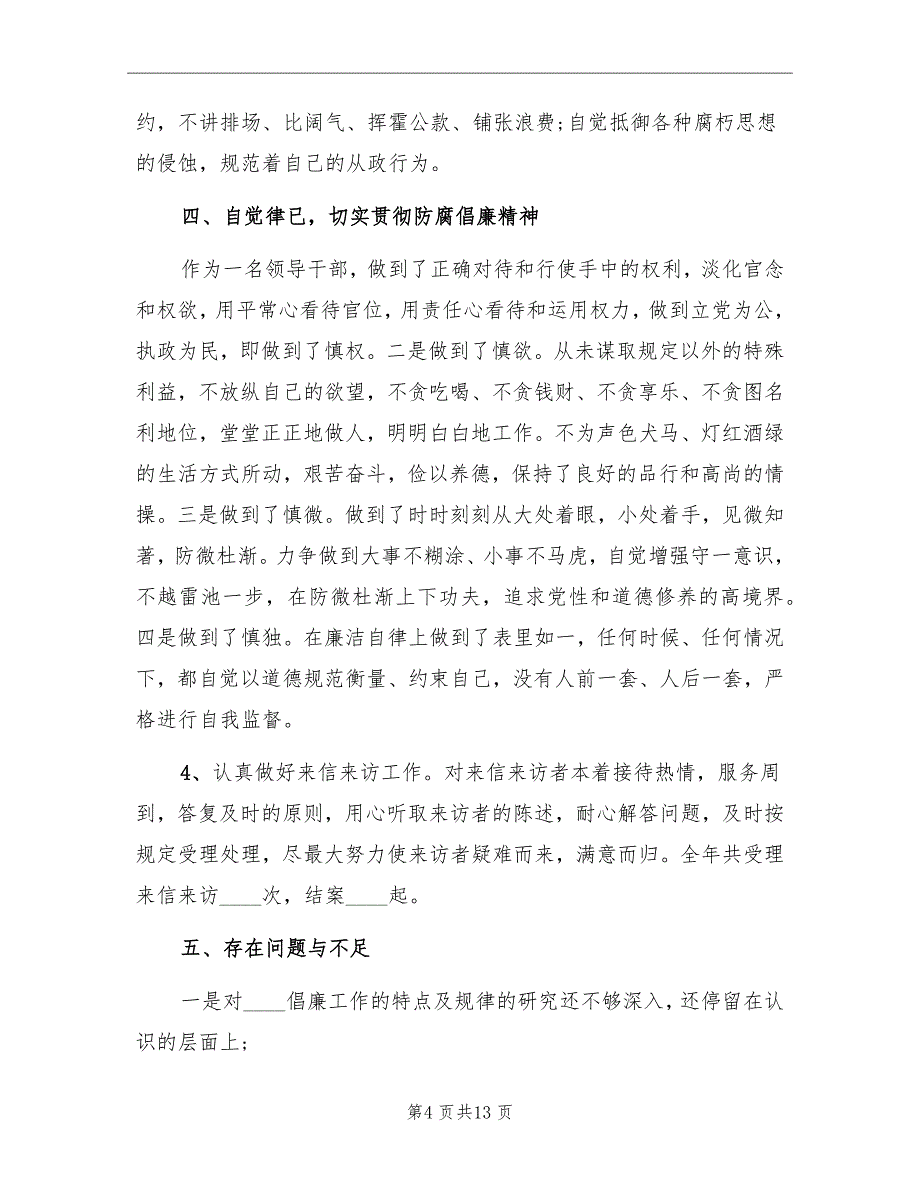 约，不讲排场、比阔气、挥霍公款、铺张浪费;自觉抵御各种腐朽思想
的侵蚀，规范着自己的从政行为。
四、自觉律已，切实贯彻防腐倡廉精神
作为一名领导干部，做到了正确对待和行使手中的权利，淡化官念
和权欲，用平常心看待官位，用责任心看待和运用权力，做到立党为公，
执政为民，即做到了慎权。二是做到了慎欲。从未谋取规定以外的特殊
利益，不放纵自己的欲望，不贪吃喝、不贪钱财、不贪享乐、不贪图名
利地位，堂堂正正地做人，明明白白地工作。不为声色犬马、灯红酒绿
的生活方式所动，艰苦奋斗，俭以养德，保持了良好的品行和高尚的情
操。三是做到了慎微。做到了时时刻刻从大处着眼，小处着手，见微知
著，防微杜渐。力争做到大事不糊涂、小事不马虎，自觉增强守一意识，
不越雷池一步，在防微杜渐上下功夫，追求党性和道德修养的高境界。
四是做到了慎独。在廉洁自律上做到了表里如一，任何时候、任何情况
下，都自觉以道德规范衡量、约束自己，没有人前一套、人后一套，严
格进行自我监督。
4、认真做好来信来访工作。对来信来访者本着接待热情，服务周
到，答复及时的原则，用心听取来访者的陈述，耐心解答问题，及时按
规定受理处理，尽最大努力使来访者疑难而来，满意而归。全年共受理
来信来访____次，结案____起。
五、存在问题与不足
一是对____倡廉工作的特点及规律的研究还不够深入，还停留在认
识的层面上;
第4 页共13 页